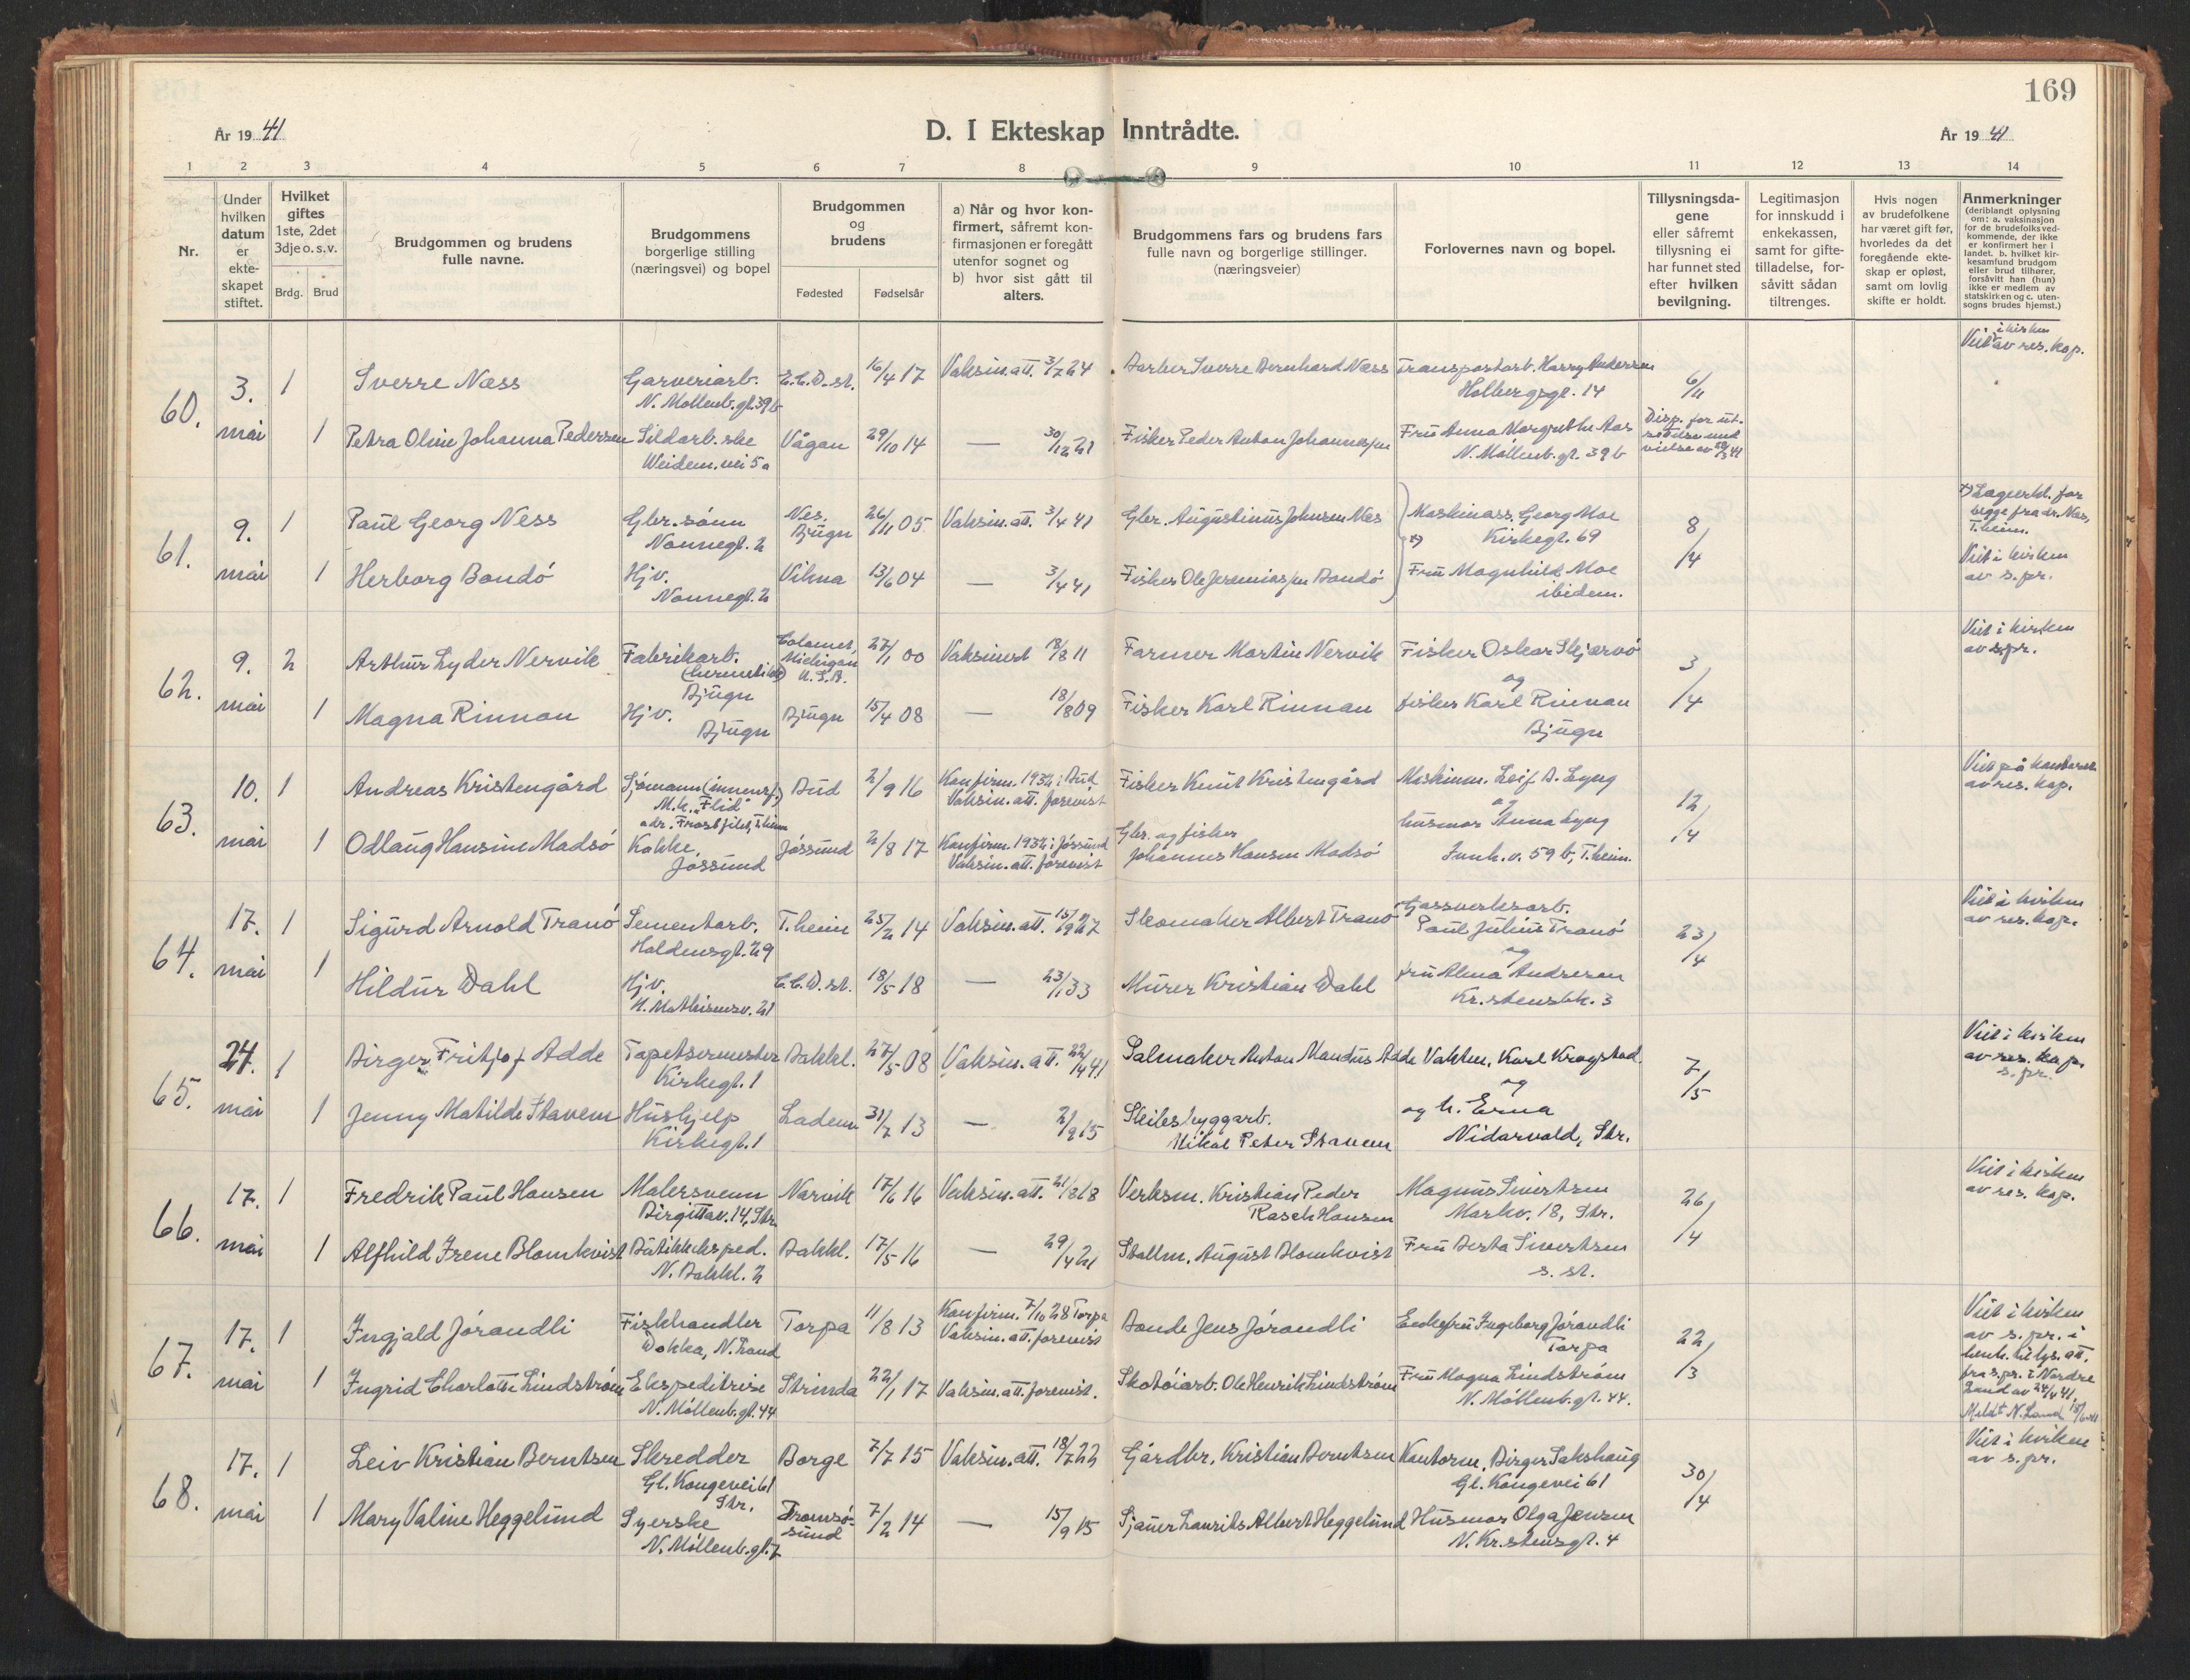 169
År 1941
D. I Ekteskap Inntrådte.
År 1941
1 2 3 4 5 6 7 8 9 10 11 12 13 14
Nr.
Under hvilken datum er ekte-skapet stiftet.
Hvilket giftes 1ste, 2det 3dje o. s. v.
Brdg. Brud
Brudgommen og brudens fulle navne.
Brudgommens borgerlige stilling (næringsvei) og bopel
Brudgommen og brudens
Fødested
Fødselsår
a) Når og hvor kon-firmert, såfremt kon-firmasjonen er foregått utenfor sognet og b) hvor sist gått til alters.
Brudgommens fars og brudens fars fulle navn og borgerlige stillinger. (næringsveier)
Forlovernes navn og bopel.
Tillysningsda-gene eller såfremt tillysning ei har funnet sted efter hvilken bevilgning.
Legitimasjon for innskudd i enkekassen, samt for gifte-tilladelse, for-såvitt sådan tiltrenges.
Hvis nogen av brudefolkene har været gift før, hvorledes da det foregående ekte-skap er opløst, samt om lovlig skifte er holdt.
Anmerkninger (deriblandt oplysning om: a. vaksinasjon for de brudefolksved-kommende, der ikke er konfirmert her i landet. b. hvilket kir-kesamfund brudgom eller brud tilhører, forsåvitt han (hun) ikke er medlem av statskirken og c. uten-sogns brudes hjemst.)
60. 3. mai
1 Sverre Næss Garveriarb. N. Møllenb.gt. 39b E.C.D.st. 16/4 17 Vaksin.att. 3/7 24 Barber Sverre Bernhard Næss Transportarb. Harry Andersen Holbergsgt. 14 6/11 Viet i kirken av res. kap.
1 Petra Oline Johanna Pedersen Sildarb.ske Weidem.vei 5a Vågan 29/10 14 — 30/12 21 Fisker Peder Anton Johannessen Fru Anna Margrethe Aas N. Møllenb.gt. 39b Disp. for ut-
61. 9. mai
1 Paul Georg Ness Gbr.sønn Nonnegt. 2 Nes, Bjugn 26/11 05 Vaksin.att. 3/4 41 Gbr. Augustinus Johnsen Nes Maskinass. Georg Moe Kirkegt. 69 8/4 x) Lægeerkl. for begge fra dr. Næs, T.heim.
1 Herborg Bondø Hjv. Nonnegt. 2 Vikna 13/6 04 — 3/4 41 Fisker Ole Jeremiassen Bondø x) Fru Magnhild Moe ibidem. Viet i kirken av s.pr.
62. 9. mai
2 Arthur Lyder Nervik Fabrikarb. (hermetikk) Bjugn Calumet, Michigan U.S.A. 27/1 00 Vaksinert 18/8 11 Farmer Martin Nervik Fisker Oskar Skjærvø 3/4 Viet i kirken av s.pr.
1 Magna Rinnan Hjv. Bjugn Bjugn 15/4 08 — 18/8 09 Fisker Karl Rinnan og fisker Karl Rinnan Bjugn
63. 10. mai
1 Andreas Kristengård Sjømann (innenrf.) M.k. "Flid" adr. Frostfilet, T.heim Bud 2/9 16 Konfirm. 1932 i Bud Vaksin.att. forevist Fisker Knut Kristengård Maskinm. Leif A. Lyng 12/4 Viet på kontoret av res. kap.
1 Odlaug Hansine Madsø Kokke, Jøssund Jøssund 2/8 17 Konfirm. 1932 i Jøssund Vaksin.att. forevist Gbr. og fisker Johannes Hansen Madsø og husmor Anna Lyng Innh.v. 59b, T.heim.
64. 17. mai
1 Sigurd Arnold Tranø Sementarb. Holdensgt. 29 T.heim 25/2 14 Vaksin.att. 15/9 27 Skomaker Albert Tranø Gassverksarb. Paul Julius Tranø 23/4 Viet i kirken av res. kap.
1 Hildur Dahl Hjv. H. Mathisensv. 21 E.C.D.st. 18/5 18 — 23/1 33 Murer Kristian Dahl og fru Alma Andresen Kr.stensbk. 3
65. 24. mai
1 Birger Fritjof Adde Tapetsermester Kirkegt. 1 Bakkl. 27/5 08 Vaksin.att. 22/4 41 Salmaker Anton Mandus Adde Vaktm. Karl Krogstad 7/5 Viet i kirken av res. kap. s.pr.
1 Jenny Matilde Stavem Hushjelp Kirkegt. 1 Lademn 31/7 13 — 2/9 15 Skibsbyggarb. Mikal Peter Stavem og og h. Erna Nidarvold, Str.
66. 17. mai
1 Fredrik Paul Hansen Malersvenn Birgittav. 14, Str. Narvik 17/6 16 Vaksin.att. 21/8 18 Verksm. Kristian Peder Rasch Hansen Magnus Sivertsen Markv. 18, Str. 26/4 Viet i kirken av res. kap.
1 Alfhild Irene Blomkvist Butikkeksped. N. Bakkl. 2 Bakkl. 17/5 16 — 29/4 21 Stallm. August Blomkvist Fru Berta Sivertsen s. st.
67. 17. mai
1 Ingjald Jørandli Fiskhandler Dokka, N. Land Torpa 11/8 13 Konfirm. 7/10 28 Torpa Vaksin.att. forevist Bonde Jens Jørandli Enkefru Ingeborg Jørandli Torpa 22/3 Viet i kirken av s.pr. i henh. til lys.att. fra s.pr. i Nordre Land av 24/4 41. Meldt N. Land
1 Ingrid Charlotte Lindstrøm Ekspeditrise N. Møllenb.gt. 44 Strinda 22/1 17 Vaksin.att. forevist. Skotøiarb. Ole Henrik Lindstrøm Fru Magna Lindstrøm N. Møllenb.gt. 44.
68. 17. mai
1 Leiv Kristian Berntsen Skredder Gl. Kongevei 61 Str. Borge 7/7 15 Vaksin.att. 18/7 22 Gårdbr. Kristian Berntsen Kontorm. Birger Sakshaug Gl. Kongevei 61 30/4 Viet i kirken av s.pr.
1 Mary Valine Heggelund Syerske N. Møllenb.gt. 7 Tromsø-sund 7/2 14 — 15/9 15 Sjauer Laurits Albert Heggelund Husmor Olga Jensen N. Kr.stensgt. 4